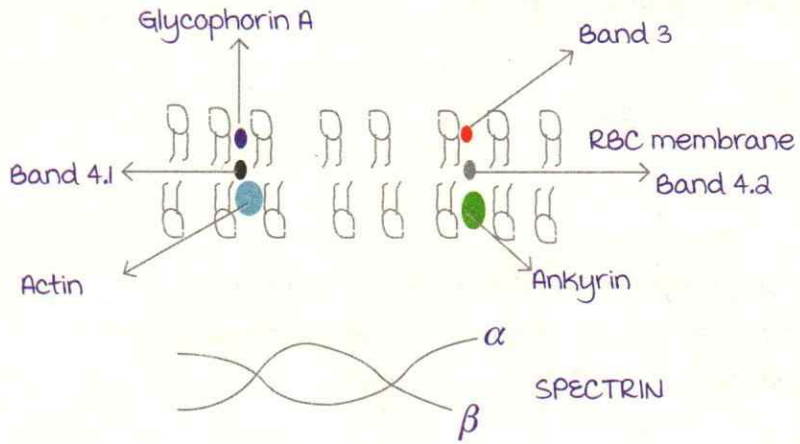 Glycophorin A
Band 3
RBC membrane
Band 4.1
Band 4.2
Actin
Ankyrin
α
SPECTRIN
β